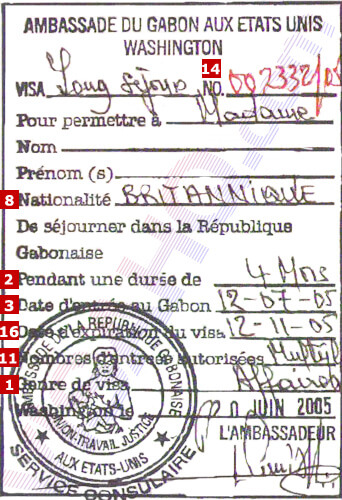 AMBASSADE DU GABON AUX ETATS UNIS
WASHINGTON
14
VISA Long séjour NO. 002332/05
Pour permettre à Madame
Nom
Prénom (s)
8 Nationalité BRITANNIQUE
De séjourner dans la République
Gabonaise
2 Pendant une durée de 4 Mois
3 Date d'entrée au Gabon 12-07-05
16 Date d'expiration du visa 12-11-05
11 Nombres d'entrées autorisées Multpl
1 Genre de visa Affaires
Washington le JUIN 2005
L'AMBASSADEUR
AMBASSADE DE LA REPUBLIQUE GABONAISE
UNION-TRAVAIL JUSTICE
AUX ETATS-UNIS
SERVICE CONSULAIRE